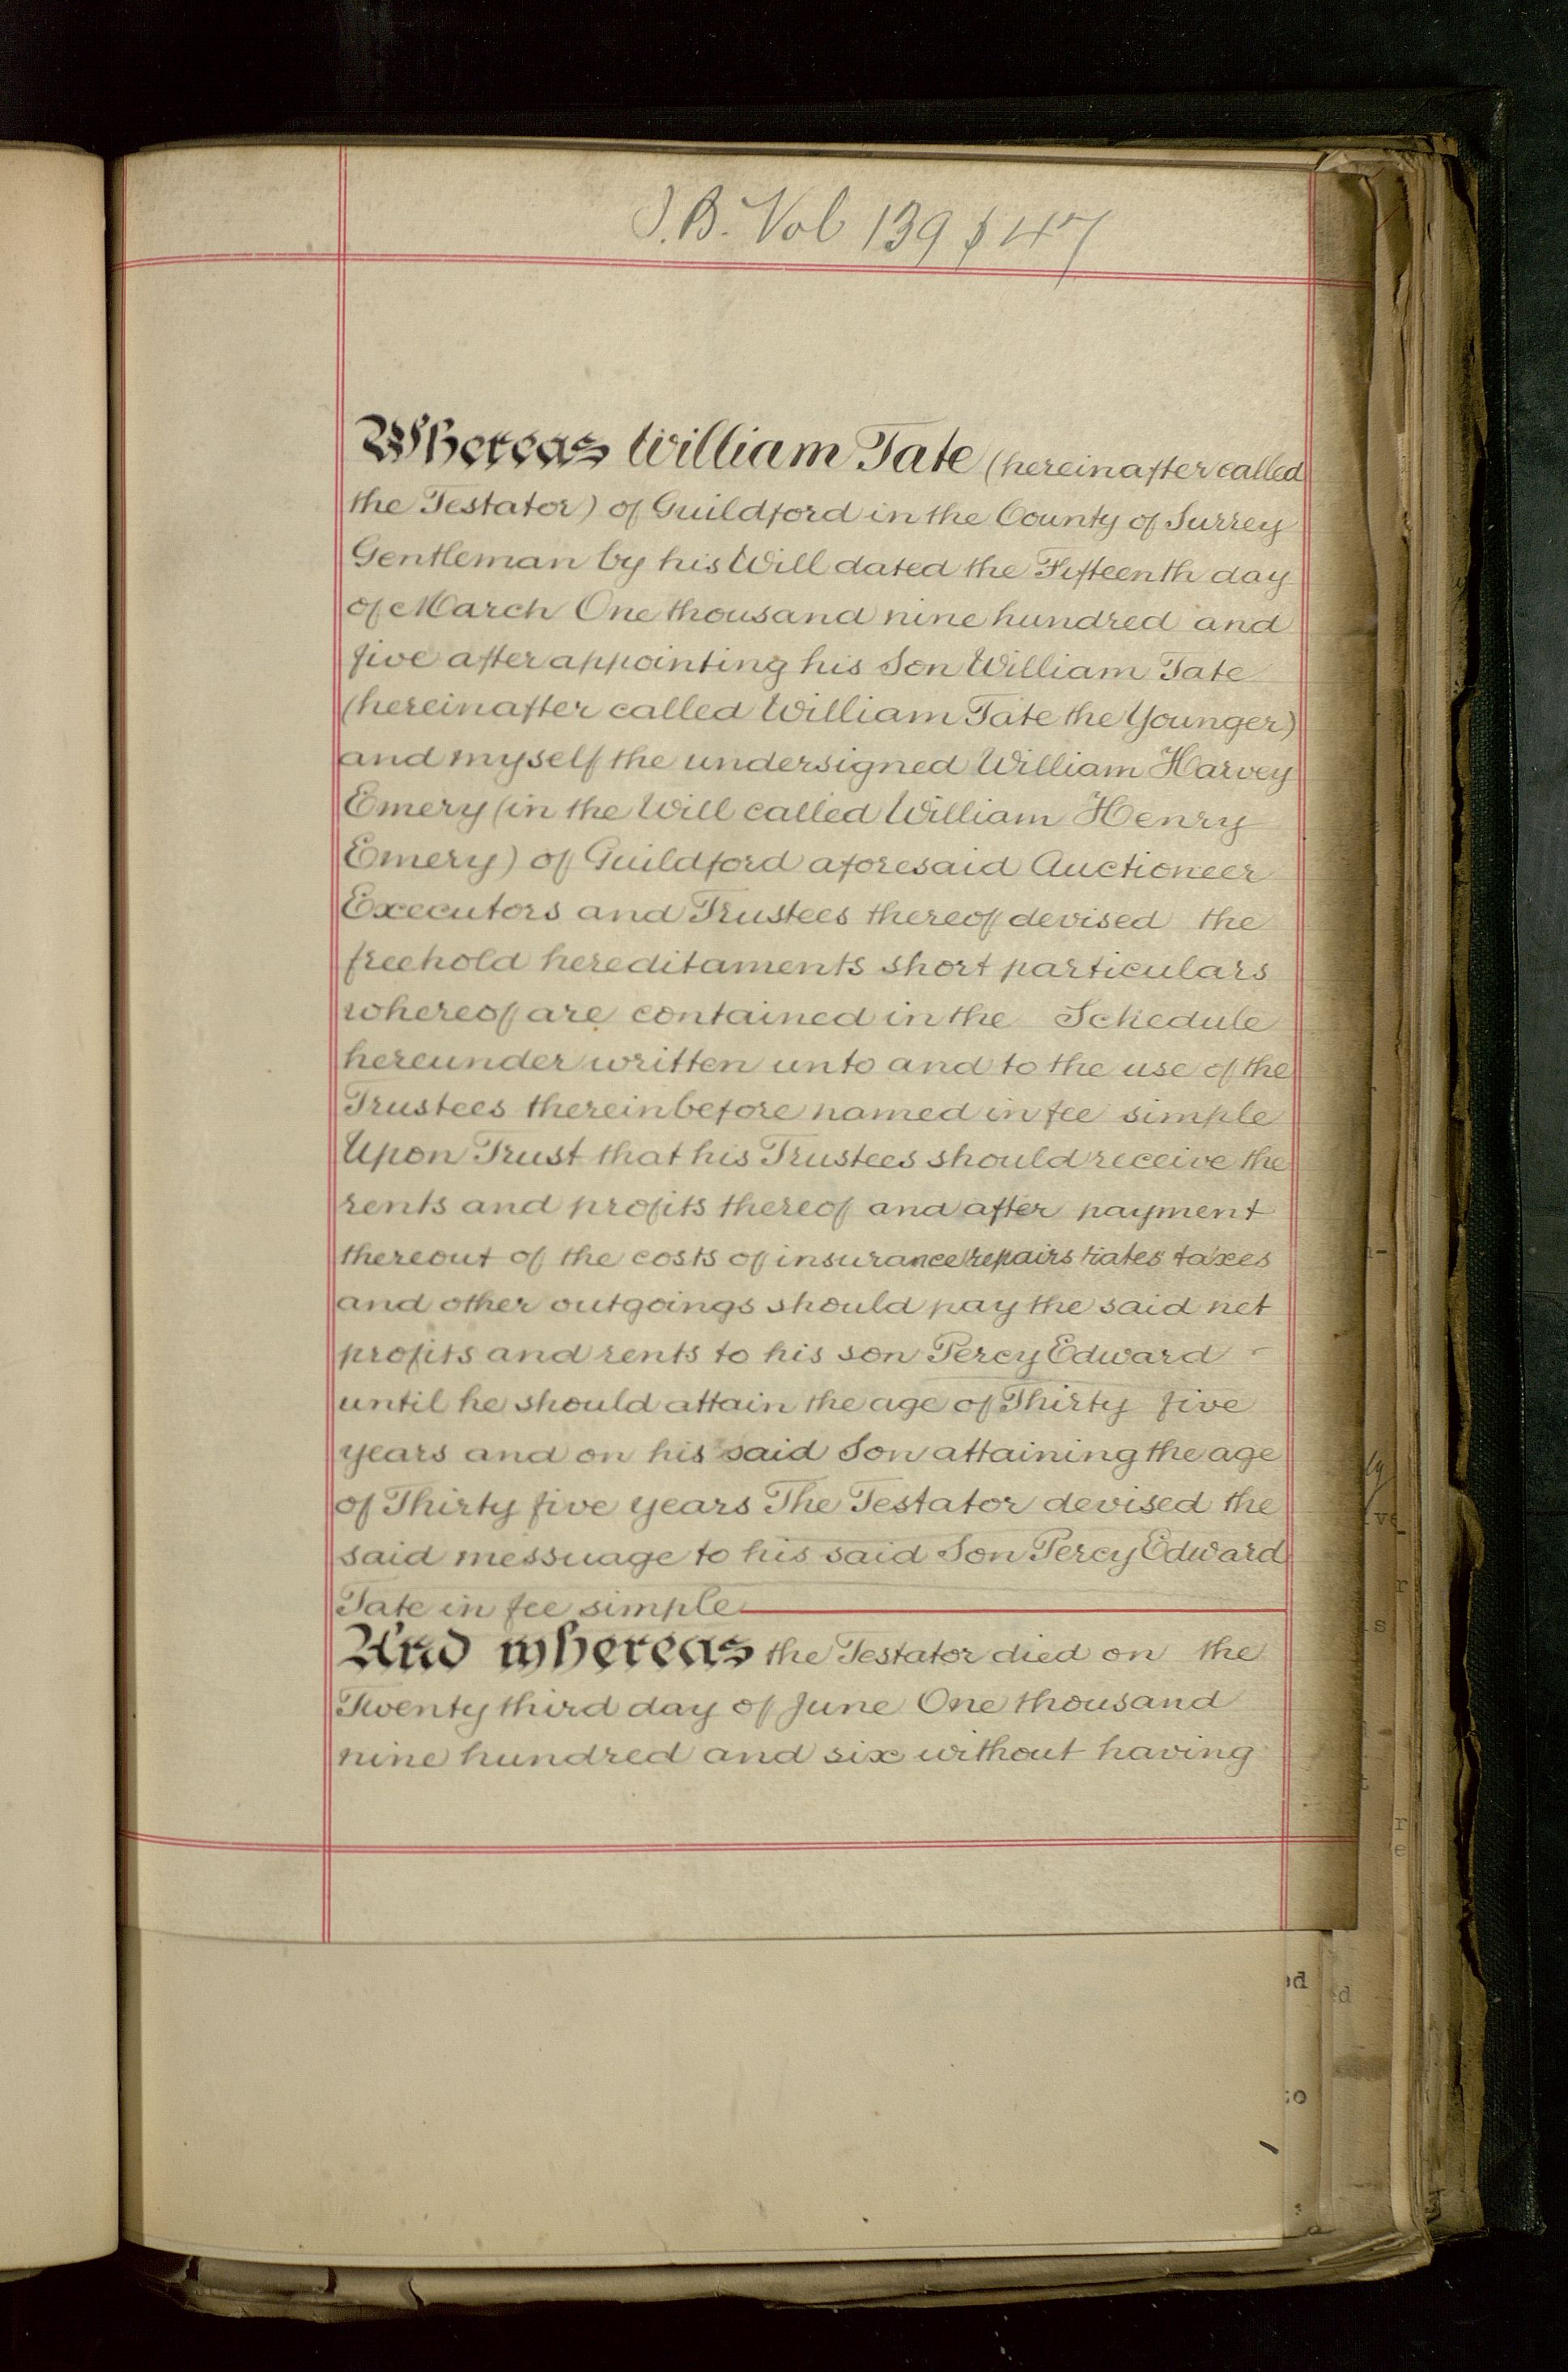 J.B. Vol 139 p 47
Whereas William Tate (hereinafter called
the Testator) of Guildford in the County of Surrey
Gentleman by his Will dated the Fifteenth day
of March One thousand nine hundred and
five after appointing his Son William Tate
(hereinafter called William Tate the Younger)
and myself the undersigned William Harvey
Emery (in the Will called William Henry
Emery) of Guildford aforesaid Auctioneer
Executors and Trustees thereof devised the
freehold hereditaments short particulars
whereof are contained in the Schedule
hereunder written unto and to the use of the
Trustees thereinbefore named in fee simple
Upon Trust that his Trustees should receive the
rents and profits thereof and after payment
thereout of the costs of insurance repairs rates taxes
and other outgoings should pay the said net
profits and rents to his son Percy Edward -
until he should attain the age of Thirty five
years and on his said Son attaining the age
of Thirty five years The Testator devised the
said messuage to his said Son Percy Edward
Tate in fee simple
And whereas the Testator died on the
Twenty third day of June One thousand
nine hundred and six without having